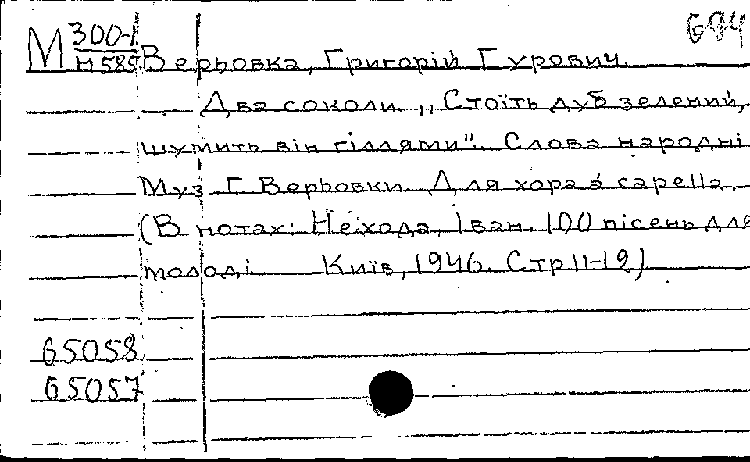 694
М 300-1
Н 589 Верьовка, Григорій Гурович.
Два соколи. „Стоїть дуб зелений,
шумить він гіллями". Слова народні
Муз Г Верьовки. Для хора a capella.
(В нотах: Нехода, Іван. 100 пісень для
молоді Київ, 1946. Стр 11-12)
65058
65057